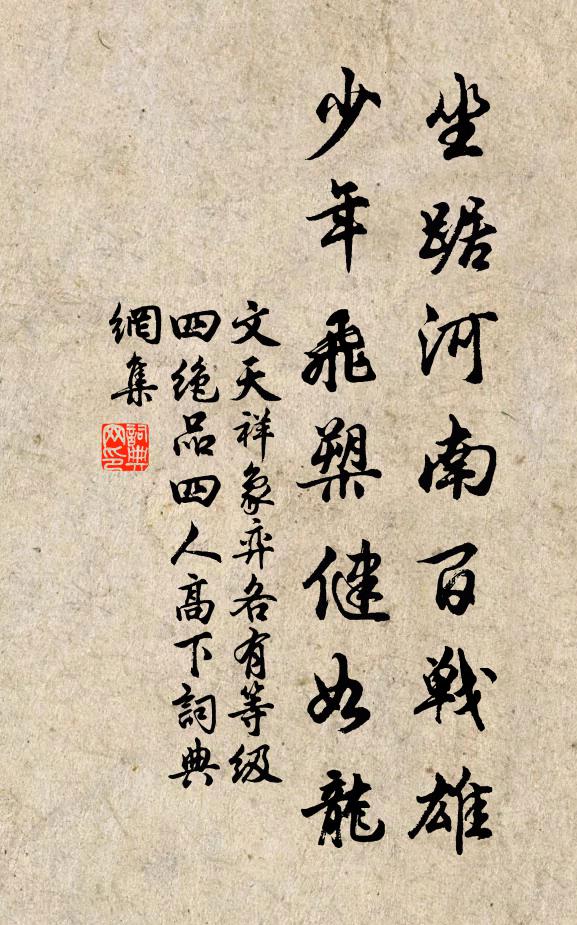 坐踞河南百戰雄
少年飛槊健如龍
文天祥象弈各有等級
四絕品四人高下詞典
網集
詞典
网印